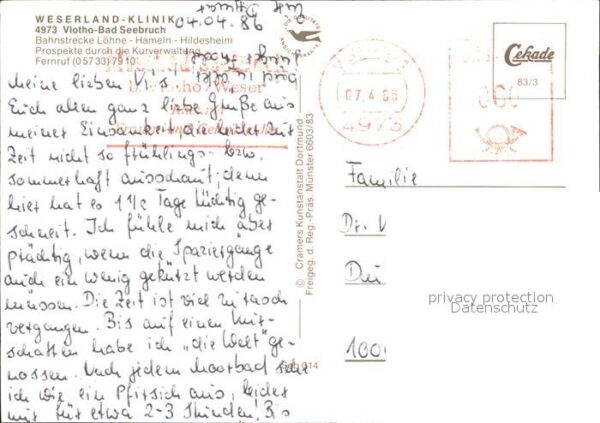 WESERLAND-KLINIK
4973 Vlotho-Bad Seebruch
Bahnstrecke Löhne - Hameln - Hildesheim
Prospekte durch die Kurverwaltung
Fernruf (05733) 7910
04.04.86
Meine lieben
Euch allen ganz liebe Grüße aus
meiner Einsamkeit die leider zur
Zeit nicht so frühlings- bzw.
sommerhaft ausschaut; denn
hier hat es 1 1/2 Tage tüchtig ge-
schneit. Ich fühle mich aber
prächtig, wenn die Spaziergänge
auch ein wenig gekürzt werden
müssen. Die Zeit ist viel zu rasch
vergangen. Bis auf einen Mit-
schatten habe ich "die Welt" ge-
nossen. Nach jedem Moorbad sehe
ich wie ein Pfirsich aus, leider
nur für etwa 2-3 Stunden. Bis
bald in alter
Vlotho
Weser
07.4.86
4973
060
Cekade
83/3
© Cramers Kunstanstalt Dortmund
Freigeg. d. Reg.-Präs. Münster 6603/83
14
Familie
Dr.
100
privacy protection
Datenschutz